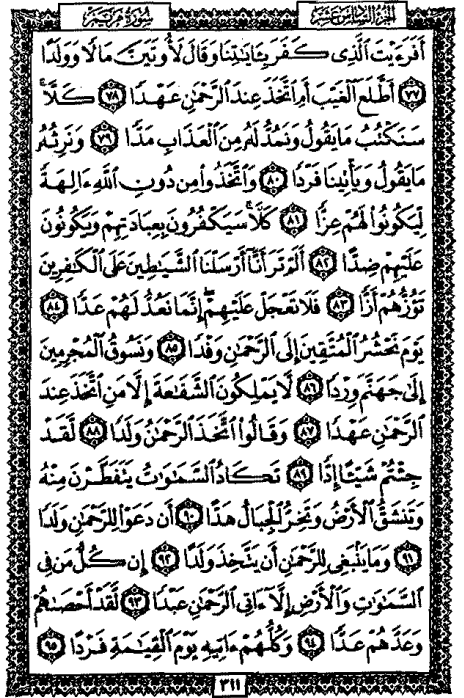 الجزء السادس عشر
سورة مريم
أَفَرَءَيْتَ الَّذِي كَفَرَ بِـَٔايَٰتِنَا وَقَالَ لَأُوتَيَنَّ مَالًا وَوَلَدًا
﴿٧٧﴾ أَطَّلَعَ الْغَيْبَ أَمِ اتَّخَذَ عِندَ الرَّحْمَٰنِ عَهْدًا ﴿٧٨﴾ كَلَّا ۚ
سَنَكْتُبُ مَا يَقُولُ وَنَمُدُّ لَهُ مِنَ الْعَذَابِ مَدًّا ﴿٧٩﴾ وَنَرِثُهُ
مَا يَقُولُ وَيَأْتِينَا فَرْدًا ﴿٨٠﴾ وَاتَّخَذُوا مِن دُونِ اللَّهِ ءَالِهَةً
لِّيَكُونُوا لَهُمْ عِزًّا ﴿٨١﴾ كَلَّا ۚ سَيَكْفُرُونَ بِعِبَادَتِهِمْ وَيَكُونُونَ
عَلَيْهِمْ ضِدًّا ﴿٨٢﴾ أَلَمْ تَرَ أَنَّا أَرْسَلْنَا الشَّيَٰطِينَ عَلَى الْكَٰفِرِينَ
تَؤُزُّهُمْ أَزًّا ﴿٨٣﴾ فَلَا تَعْجَلْ عَلَيْهِمْ ۖ إِنَّمَا نَعُدُّ لَهُمْ عَدًّا ﴿٨٤﴾
يَوْمَ نَحْشُرُ الْمُتَّقِينَ إِلَى الرَّحْمَٰنِ وَفْدًا ﴿٨٥﴾ وَنَسُوقُ الْمُجْرِمِينَ
إِلَىٰ جَهَنَّمَ وِرْدًا ﴿٨٦﴾ لَّا يَمْلِكُونَ الشَّفَٰعَةَ إِلَّا مَنِ اتَّخَذَ عِندَ
الرَّحْمَٰنِ عَهْدًا ﴿٨٧﴾ وَقَالُوا اتَّخَذَ الرَّحْمَٰنُ وَلَدًا ﴿٨٨﴾ لَّقَدْ
جِئْتُمْ شَيْـًٔا إِدًّا ﴿٨٩﴾ تَكَادُ السَّمَٰوَٰتُ يَتَفَطَّرْنَ مِنْهُ
وَتَنشَقُّ الْأَرْضُ وَتَخِرُّ الْجِبَالُ هَدًّا ﴿٩٠﴾ أَن دَعَوْا لِلرَّحْمَٰنِ وَلَدًا
﴿٩١﴾ وَمَا يَنۢبَغِي لِلرَّحْمَٰنِ أَن يَتَّخِذَ وَلَدًا ﴿٩٢﴾ إِن كُلُّ مَن فِي
السَّمَٰوَٰتِ وَالْأَرْضِ إِلَّا ءَاتِي الرَّحْمَٰنِ عَبْدًا ﴿٩٣﴾ لَّقَدْ أَحْصَىٰهُمْ
وَعَدَّهُمْ عَدًّا ﴿٩٤﴾ وَكُلُّهُمْ ءَاتِيهِ يَوْمَ الْقِيَٰمَةِ فَرْدًا ﴿٩٥﴾
٣١١